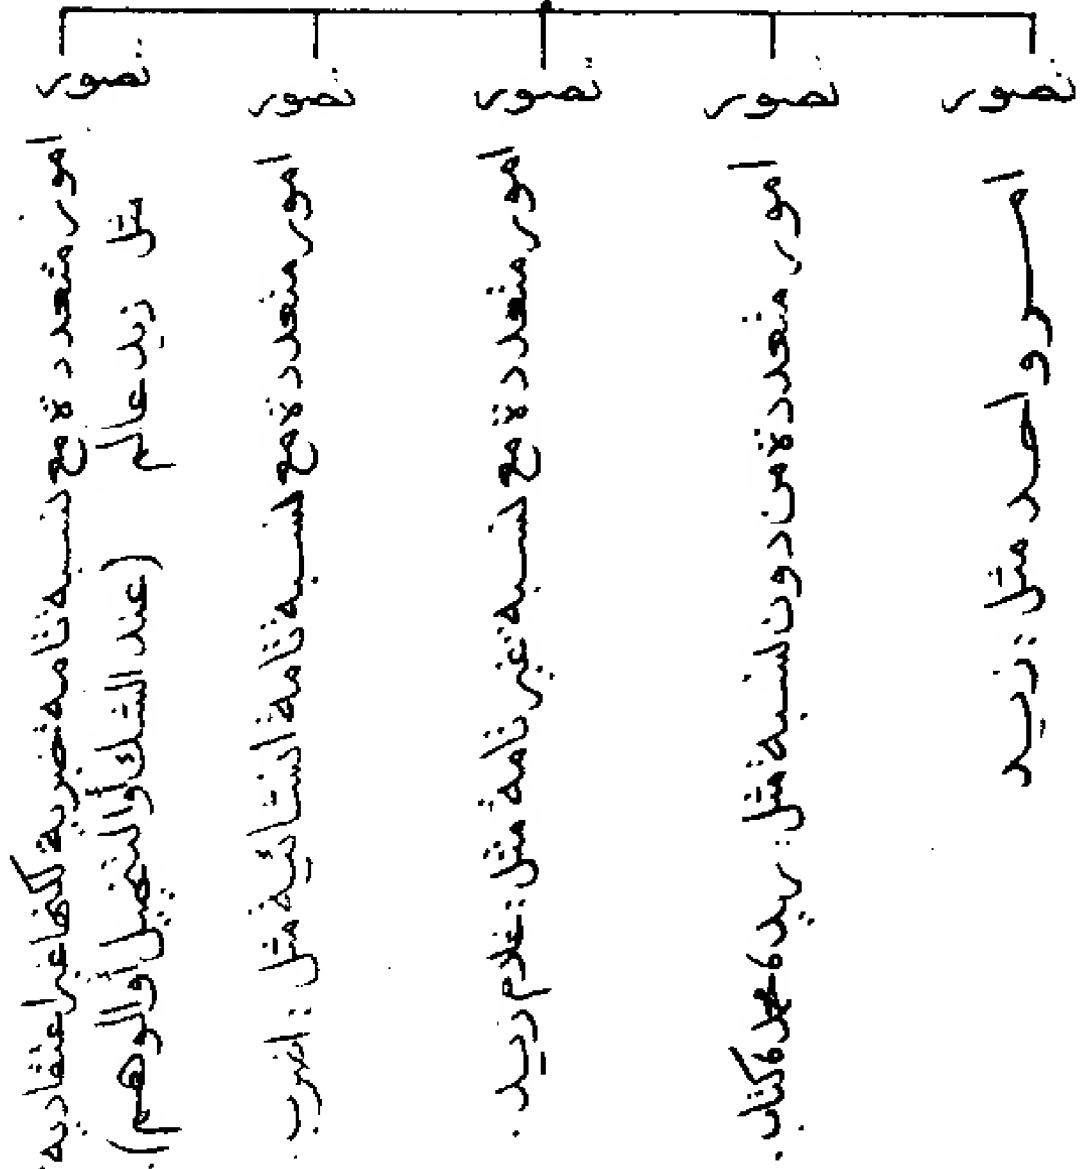 تصور
امر واحد مثل: زيد
تصور
امور متعددة من دون نسبة مثل: زيد، عهد، كتاب.
تصور
امور متعددة مع نسبة غير تامة مثل: غلام زيد.
تصور
امور متعددة مع نسبة تامة انشائية مثل: اضرب.
تصور
امور متعددة مع نسبة تامة خبرية لكنها غير اعتقادية
مثل زيد عالم (عند الشك أو التخيل أو الوهم).